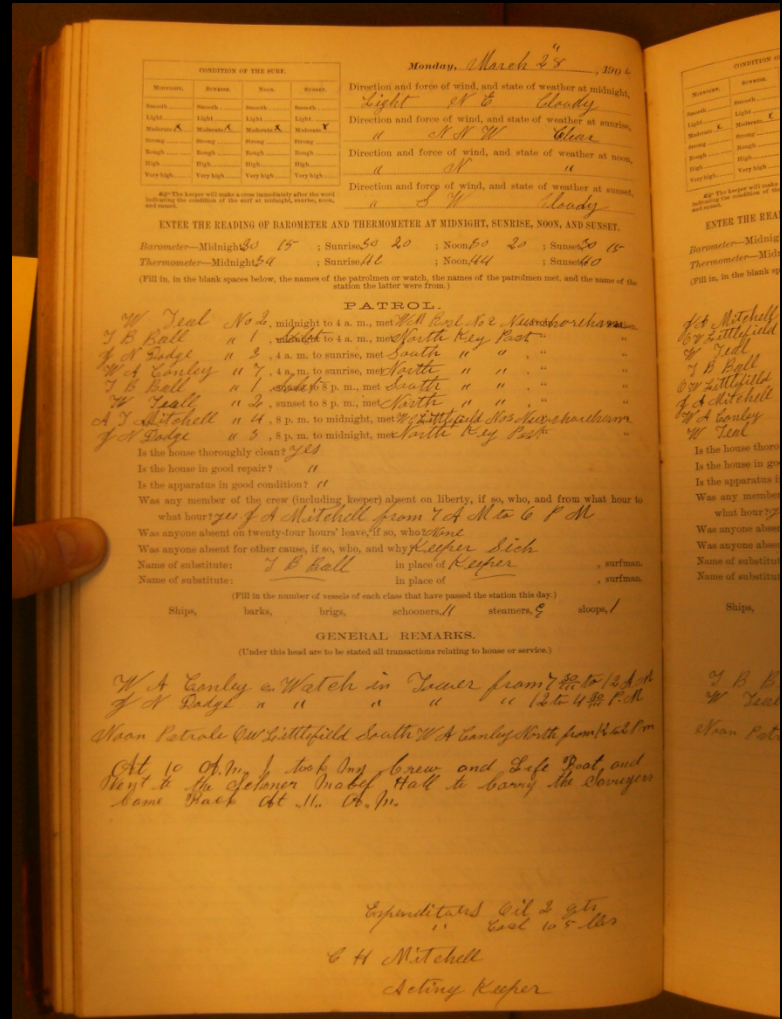 CONDITION OF THE SURF.
MIDNIGHT. SUNRISE. NOON. SUNSET.
Smooth Smooth Smooth Smooth
Light Light Light Light
Moderate x Moderate x Moderate x Moderate x
Strong Strong Strong Strong
Rough Rough Rough Rough
High High High High
Very high Very high Very high Very high
The keeper will make a cross immediately after the word indicating the condition of the surf at midnight, sunrise, noon, and sunset.
Monday, March 28", 190
Direction and force of wind, and state of weather at midnight,
Light N E Cloudy
Direction and force of wind, and state of weather at sunrise,
" N N W Clear
Direction and force of wind, and state of weather at noon,
" N "
Direction and force of wind, and state of weather at sunset,
" S W Cloudy
ENTER THE READING OF BAROMETER AND THERMOMETER AT MIDNIGHT, SUNRISE, NOON, AND SUNSET.
Barometer—Midnight 30 15 ; Sunrise 30 20 ; Noon 30 20 ; Sunset 30 15
Thermometer—Midnight ; Sunrise 42 ; Noon, 44 ; Sunset 40
(Fill in, in the blank spaces below, the names of the patrolmen or watch, the names of the patrolmen met, and the name of the
station the latter were from.)
PATROL.
W Teal No 2, midnight to 4 a. m., met West Post No 2 Newshoreham
T B Ball " 1, to 4 a. m., met North Key Post "
J N Dodge " 3, 4 a. m. to sunrise, met South " " , " "
W A Conley " 7, 4 a. m. to sunrise, met North " " , " "
T B Ball " 1, to 8 p. m., met South " " , " "
W Teall " 2, sunset to 8 p. m., met North " " , " "
A J Mitchell " 4, 8 p. m. to midnight, met W Littlefield No 5 Newshoreham
J N Dodge " 3, 8 p. m. to midnight, met North Key Post "
Is the house thoroughly clean? yes
Is the house in good repair? "
Is the apparatus in good condition? "
Was any member of the crew (including keeper) absent on liberty, if so, who, and from what hour to
what hour? yes J A Mitchell from 7 A M to 6 P M
Was anyone absent on twenty-four hours' leave, if so, who? None
Was anyone absent for other cause, if so, who, and why? Keeper Sick
Name of substitute: T B Ball in place of Keeper , surfman.
Name of substitute: in place of , surfman.
(Fill in the number of vessels of each class that have passed the station this day.)
Ships, barks, brigs, schooners, 11 steamers, 9 sloops, 1
GENERAL REMARKS.
(Under this head are to be stated all transactions relating to house or service.)
W A Conley on Watch in Tower from 7 30 to 12 A M
J N Dodge " " " " " 12 to 4 30 P. M
Noon Patrols O W Littlefield South W A Conley North from 12 to 2 P m
At 10 A.M. I took my Crew and Life Boat, and
Went to the Schoner Mabel Hall to Carry the Surveyers
Came Back At 11. A. M.
Expenditures Oil 2 qts
" Coal 105 lbs
C H Mitchell
Acting Keeper
CONDITION O
MIDNIGHT. SUNRISE.
Smooth Smooth
Light Light
Moderate x Moderate x
Strong Strong
Rough Rough
High High
Very high Very high
ENTER THE REA
Barometer—Midnig
Thermometer—Mid
(Fill in, in the blank sp
J A Mitchell
O W Littlefield
W Teal
T B Ball
O W Littlefield
J A Mitchell
W A Conley
W Teal
Is the house thoro
Is the house in go
Is the apparatus i
Was any membe
what hour?
Was anyone absen
Was anyone absen
Name of substitut
Name of substitut
Ships,
T B B
W Teal
Noon Patr